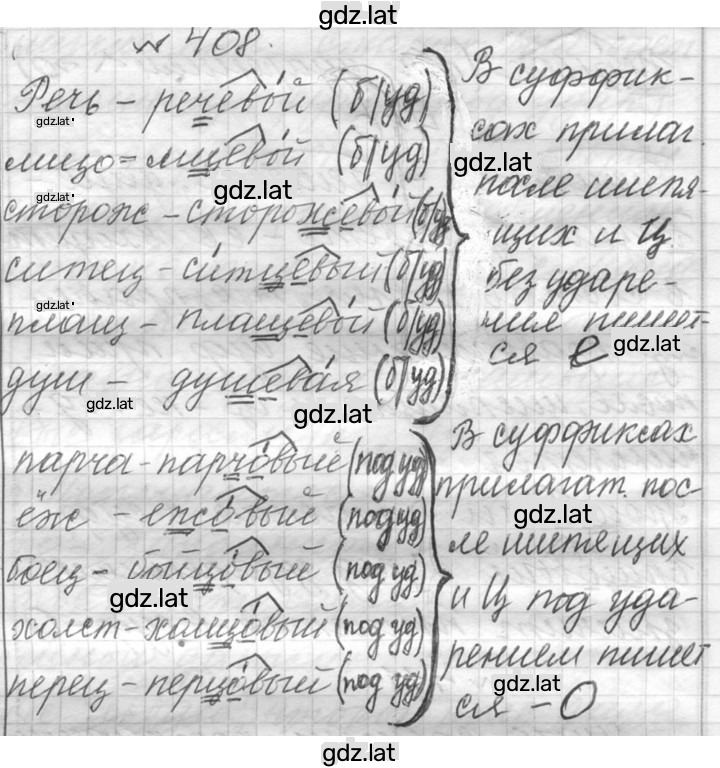 gdz.lat
№ 408.
Речь – речевой (б/уд)
gdz.lat
лицо – лицевой (б/уд)
gdz.lat
gdz.lat
сторож – сторожевой (б/уд)
ситец – ситцевый (б/уд)
gdz.lat
плащ – плащевой (б/уд)
душ – душевая (б/уд)
gdz.lat
gdz.lat
В суффик-
сах прилаг.
gdz.lat
после шипя-
щих и Ц
без ударе-
ния пишет-
ся е
gdz.lat
парча – парчовый (под уд)
ёж – ежовый (под уд)
боец – бойцовый (под уд)
gdz.lat
холст – холщовый (под уд)
перец – перцовый (под уд)
В суффиксах
прилагат. пос-
gdz.lat
ле шипящих
и Ц под уда-
рением пишет
gdz.lat
ся – О
gdz.lat